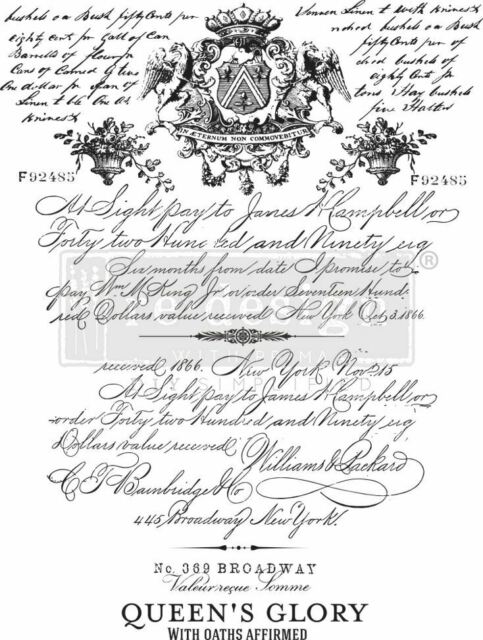 bushels oa Bush fifty Cents per
eighty Cents pr Gall of Can
Barrells of flour pr
Cans of Canned G
One dollar pr
Linen t
Knives x
Linen t with Knives x
bushels oa Bush
fifty Cents per
bushels of
eighty Cents pr
tons Hay bushels
five Halters
IN ÆTERNUM NON COMMOVEBITUR
F92485
F92485
At Sight pay to James W Campbell or
Forty two Hund ed and Ninety eig
Six months from date I promise to
pay Wm M King Jr or order Seventeen Hund-
red Dollars value received New York Oct 3. 1866.
®
WITH PRIMA
received 1866. New York Nov 15
At Sight pay to James W Campbell or
order Forty two Hundred and Ninety eig
Dollars value received
Williams & Packard
C T Bainbridge & Co
445 Broadway New York.
No. 369 BROADWAY
Valeur reçue Somme
QUEEN'S GLORY
WITH OATHS AFFIRMED